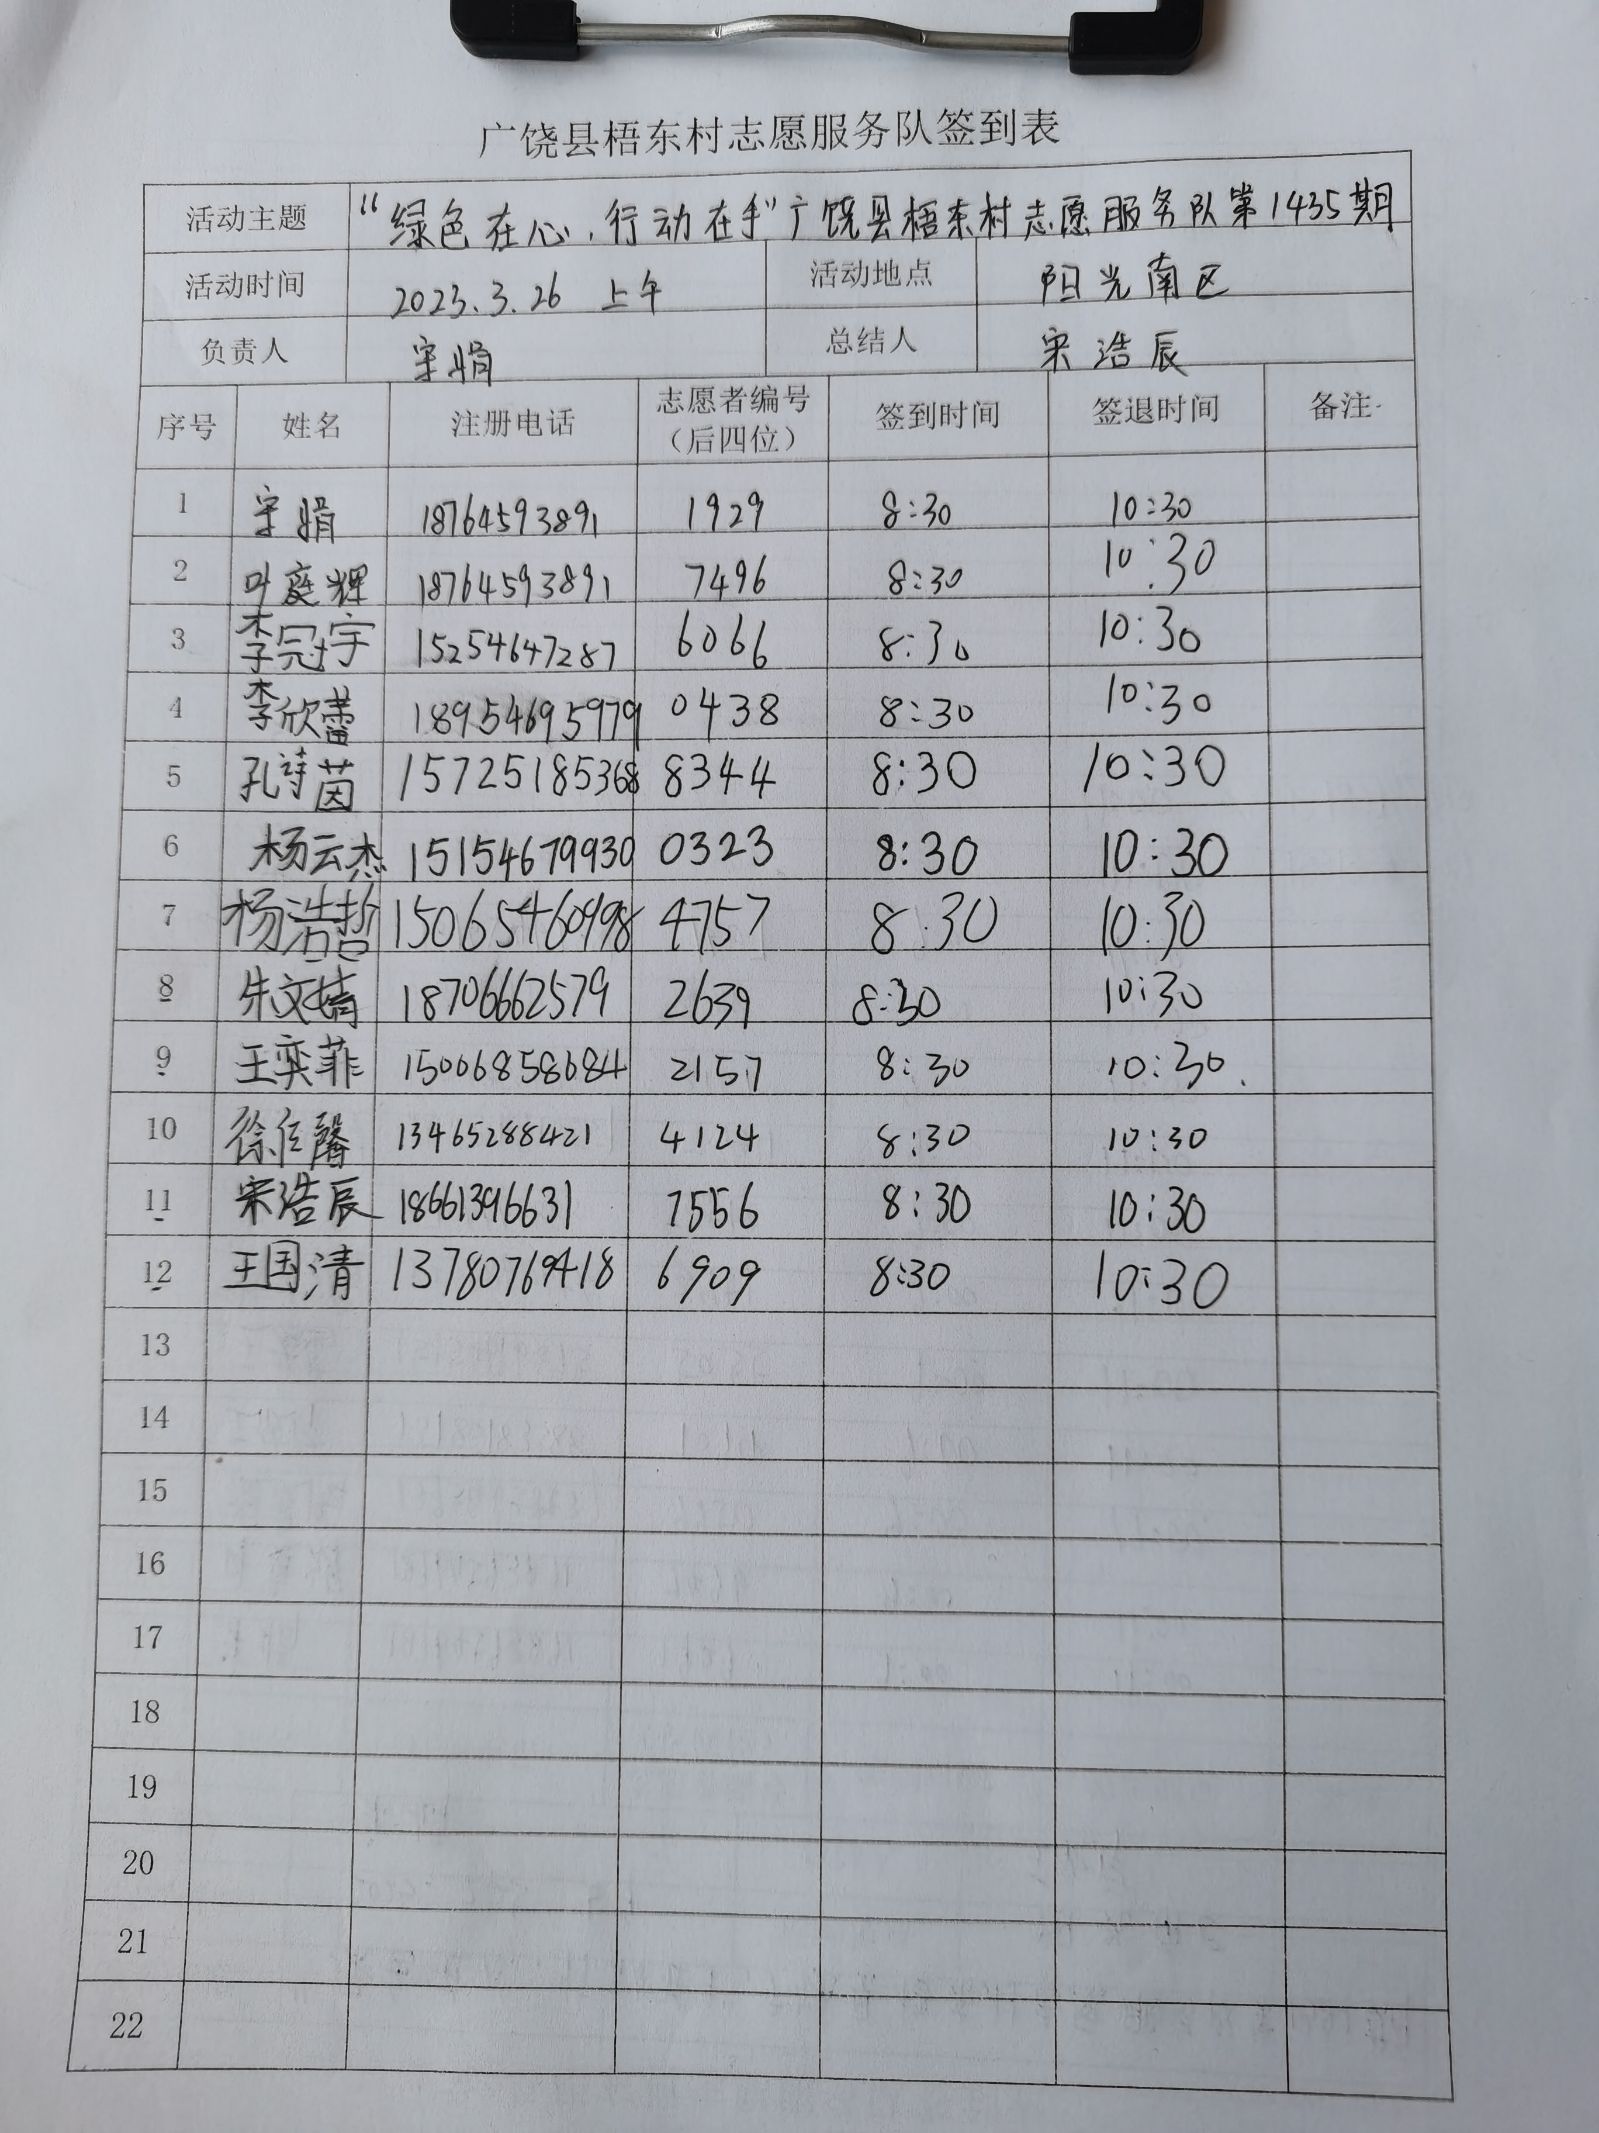 广饶县梧东村志愿服务队签到表
活动主题 “绿色在心,行动在手”广饶县梧东村志愿服务队第1435期
活动时间 2023.3.26 上午 活动地点 阳光南区
负责人 宋娟 总结人 宋浩辰
序号 姓名 注册电话 志愿者编号(后四位) 签到时间 签退时间 备注
1 宋娟 18764593891 1929 8:30 10:30
2 叶庭辉 18764593891 7496 8:30 10:30
3 李冠宇 15254647287 6066 8:30 10:30
4 李欣蕾 18954695979 0438 8:30 10:30
5 孔诗茵 15725185368 8344 8:30 10:30
6 杨云杰 15154679930 0323 8:30 10:30
7 杨浩哲 15065460998 4757 8:30 10:30
8 朱文婧 18706662579 2639 8:30 10:30
9 王奕菲 15006858684 2157 8:30 10:30
10 徐馨 13465288421 4124 8:30 10:30
11 宋浩辰 18661396631 7556 8:30 10:30
12 王国清 13780769418 6909 8:30 10:30
13
14
15
16
17
18
19
20
21
22